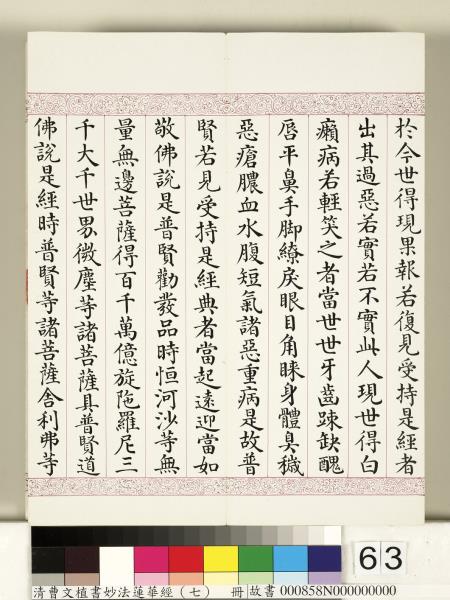 於今世得現果報若復見受持是經者
出其過惡若實若不實此人現世得白
癩病若輕笑之者當世世牙齒踈缺醜
脣平鼻手脚繚戾眼目角睞身體臭穢
惡瘡膿血水腹短氣諸惡重病是故普
賢若見受持是經典者當起遠迎當如
敬佛說是普賢勸發品時恒河沙等無
量無邊菩薩得百千萬億旋陁羅尼三
千大千世界微塵等諸菩薩具普賢道
佛說是經時普賢等諸菩薩舍利弗等
63
清曹文植書妙法蓮華經（七） 冊 故書 000858N000000000